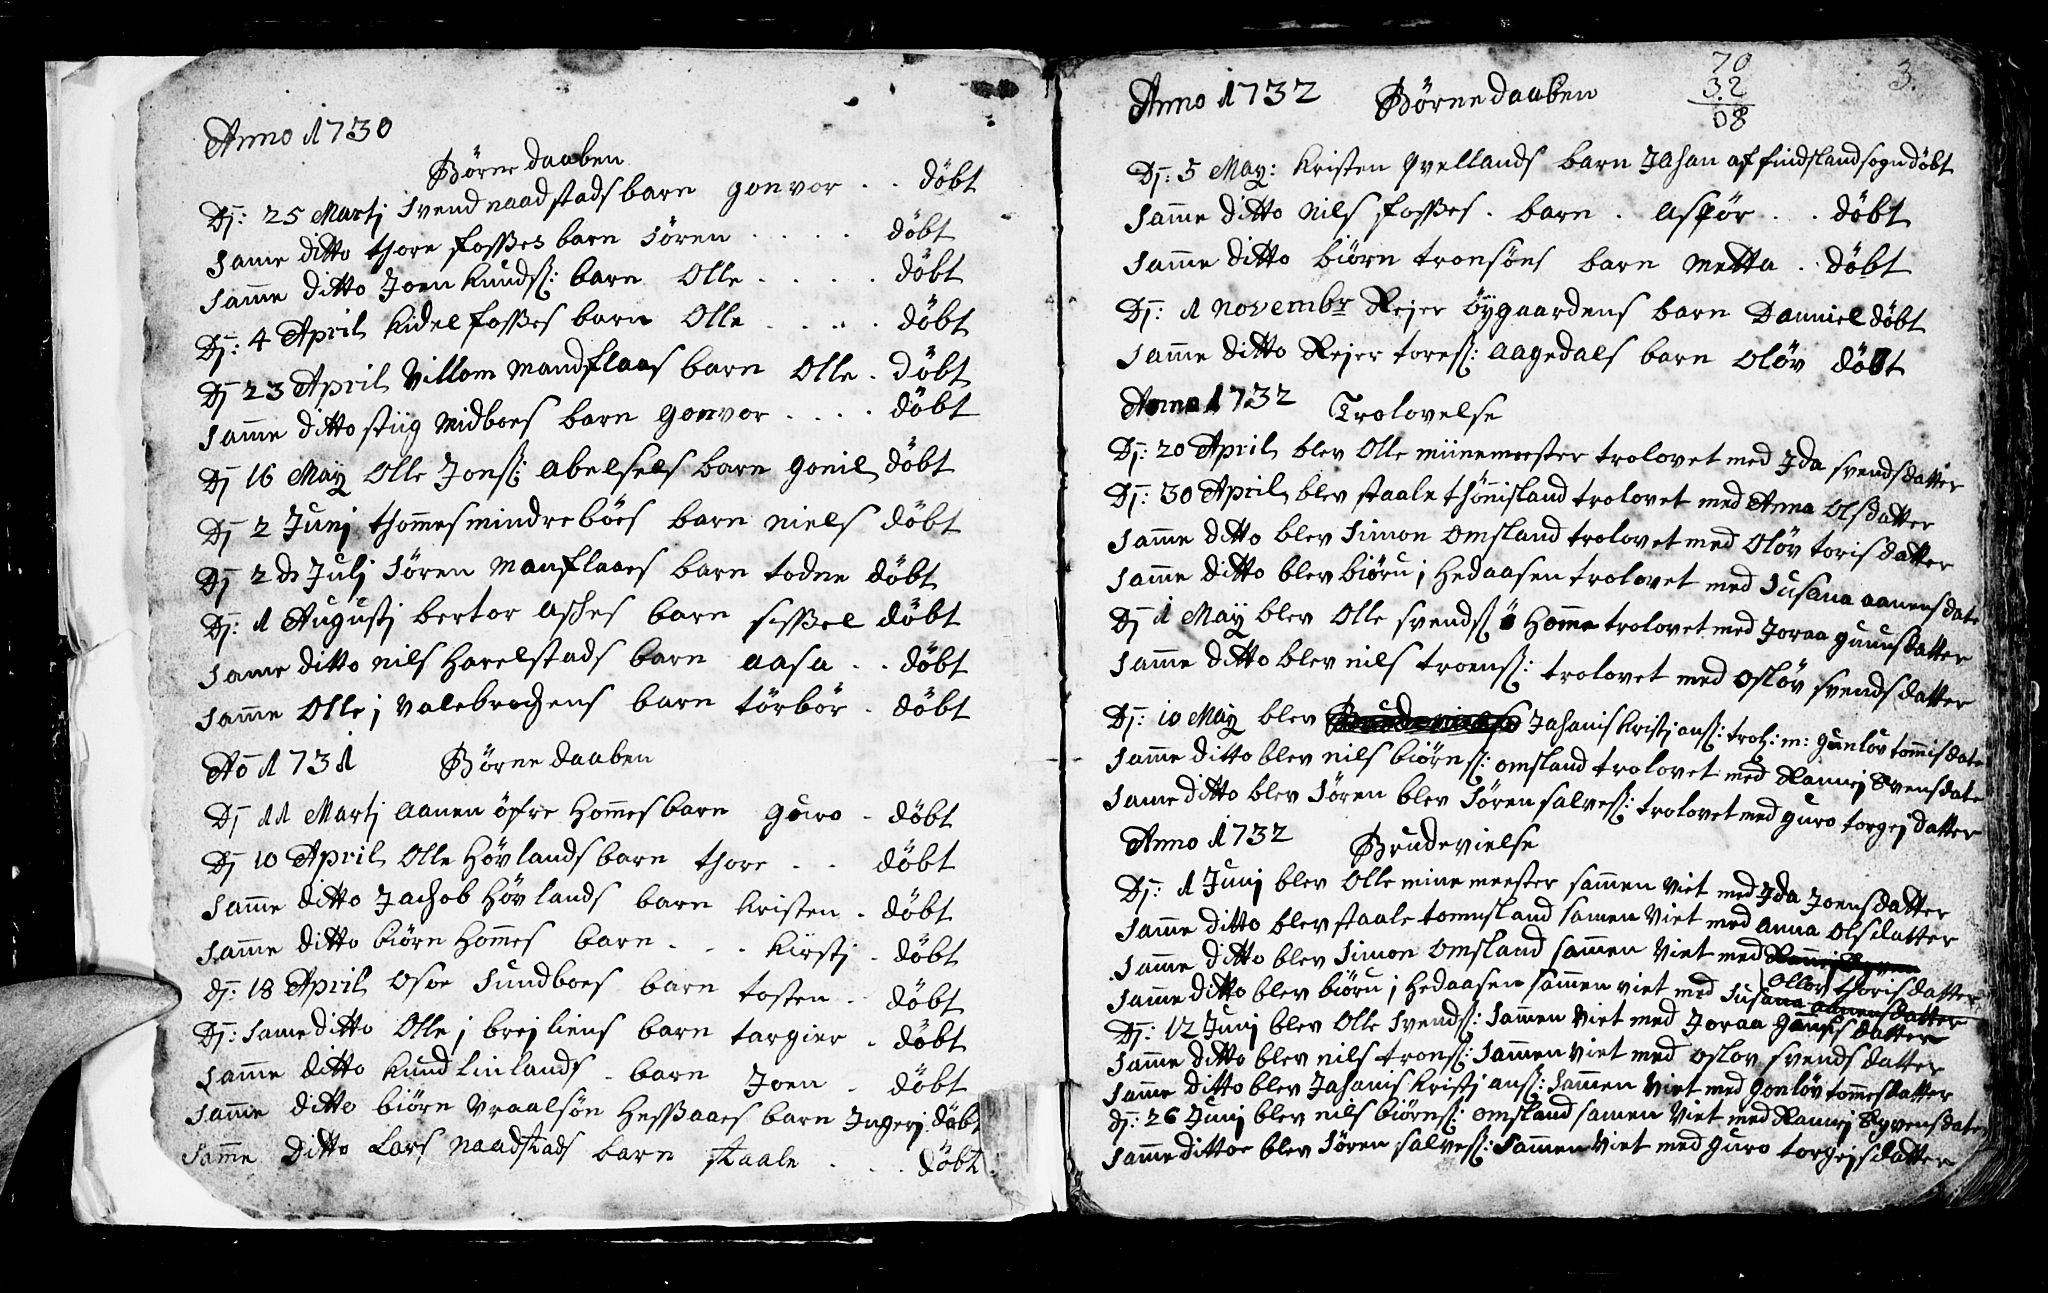 Anno 1730
Börne daaben
Dj: 25 Martj Svend naadstads barn gonvor . . döbt
Same ditto thore fosses barn Sören . . . . döbt
Samme ditto Joen Knuds: barn Olle . . . . döbt
Dj: 4 April kidel fosses barn Olle . . . . döbt
Dj 23 April Villom Mandflaas barn Olle . döbt
Samme ditto stiig Midboes barn gonvor . . . . döbt
Dj 16 Maÿ Olle Jons: abelsels barn gonil döbt
Dj 2 Junj thommes mindreböes barn niels döbt
Dj 2 de Julj Sören Manflaaes barn todne döbt
Dj: 1 Augustj bertor Asches barn sissel döbt
Same ditto nils Harelstads barn aasa . . döbt
Samme Olle j Valebrochens barn törbör . döbt
Ao 1731 Börne daaben
Dj 11 Martj aanen öfre Hommes barn Guro . döbt
Dj 10 April Olle Hövlands barn thore . . döbt
Samme ditto Jachob Hövlands barn kristen . döbt
Samme ditto biörn Hommes barn . . . kirstj . döbt
Dj: 18 April Osoe Sundboes barn tosten . döbt
Dj: Same ditto Olle j brejliens barn targier . döbt
Samme ditto knud linlands . barn Joen . döbt
Samme ditto biörn Vraalsön Hessaaes barn Ingerj döbt
Samme ditto Lars naadstads barn staale . . . döbt
70
32
08
3.
Anno 1732 Börne daaben
Dj: 5 May: kristen qvellands barn Jahan af findsland sogn döbt
Samme ditto nils fosses . barn . aspör . . döbt
Samme ditto biörn tronsöns barn Metta . döbt
Dj: 1 novembr Rejer öÿgaardens barn Danniel döbt
Samme ditto Rejer tores: aagedals barn Olöv döbt
Anno 1732 Trolovelse
Dj: 20 April blev Olle miinemeester trolovet med Jda svendsdatter
Dj: 30 April blev staale thönnisland trolovet med Anna Olsdatter
Samme ditto blev Simon Omsland trolovet med Olöv torisdatter
Samme ditto blev biörn j Hedaasen trolovet med Susana aanensdate
Dj 1 Maÿ blev Olle svends: Homme trolovet med Joraa gunnsdatter
Samme ditto blev nils troens: trolovet med Oslöv svendsdatter
Dj: 10 Maÿ blev Jahanis kristjans: trol: m: gunlöv tommisdate
Samme ditto blev nils biörns: omsland trolovet med Rannej Svensdate
Same ditto blev Sören blev Sören salves: trolovet med guro torgejdatter
Anno 1732 Brudevielse
Dj: 1 Junj blev Olle mine meester sammen viet med Jda Joensdatter
Samme ditto blev staale tommsland samen viet med anna Olsdatter
Samme ditto blev Simon Omsland sammen viet med
Ollöv thorisdatter
Samme ditto blev biörn j Hedaasen sammen viet med Susana aanensdatter
Dj: 12 Junj blev Olle Svends: Sammen viet med Joraa gunsdatter
Samme ditto blev nils trons: Sammen viet med Oslov svendsdatter
Samme ditto blev Jahanis kristjans: Sammen viet med gonlöv tommesdatter
Dj: 26 Junj blev nils biörns: omsland samen viet med Rannej Syvensdate
Samme dittoe blev Sören salves: Sammen viet med guro torgejsdatter